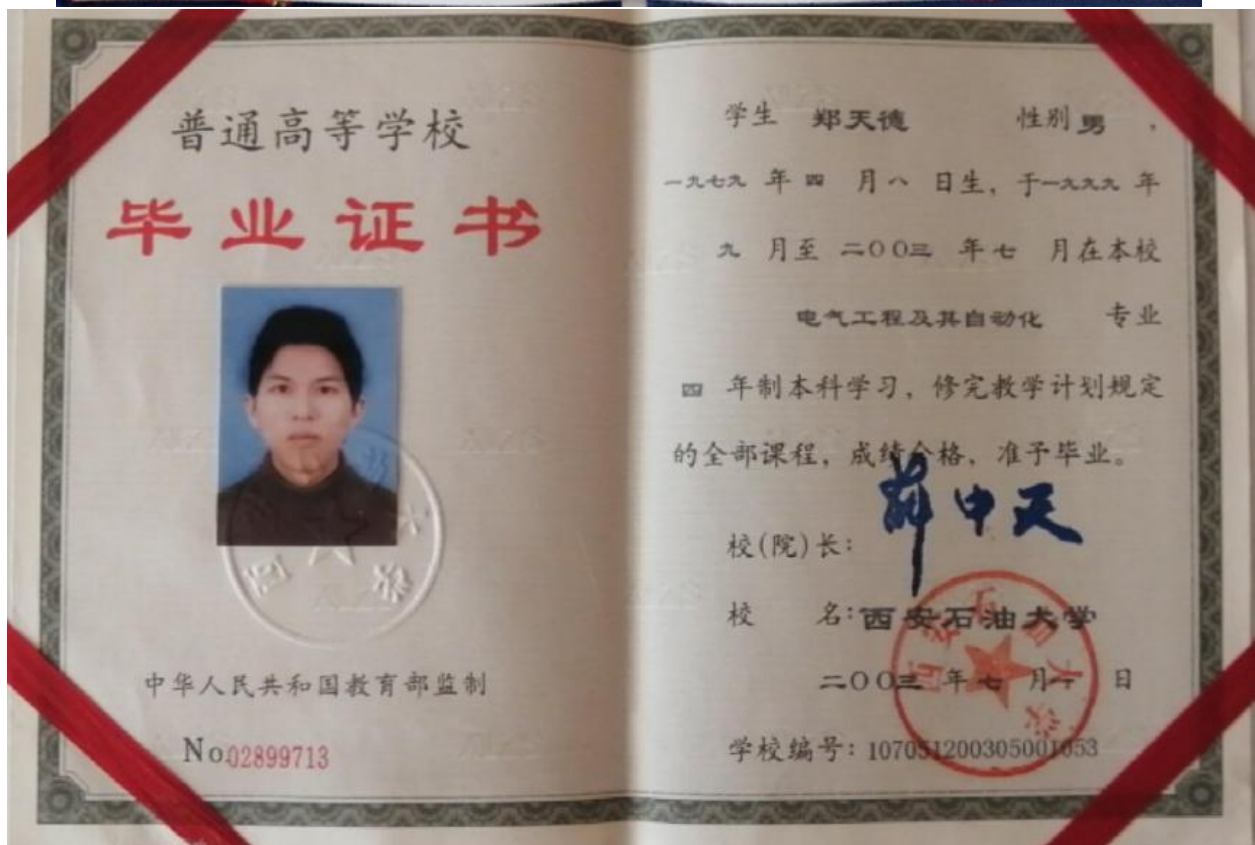 普通高等学校
毕业证书
中华人民共和国教育部监制
No.02899713
学生 郑天德 性别 男 ,
一九七九 年 四 月 八 日生, 于一九九九 年
九 月至 二〇〇三 年 七 月在本校
电气工程及其自动化 专业
四 年制本科学习, 修完教学计划规定
的全部课程, 成绩合格, 准予毕业。
校(院)长:
校 名: 西安石油大学
二〇〇三 年 七 月 一 日
学校编号: 107051200305001053
西安石油大学